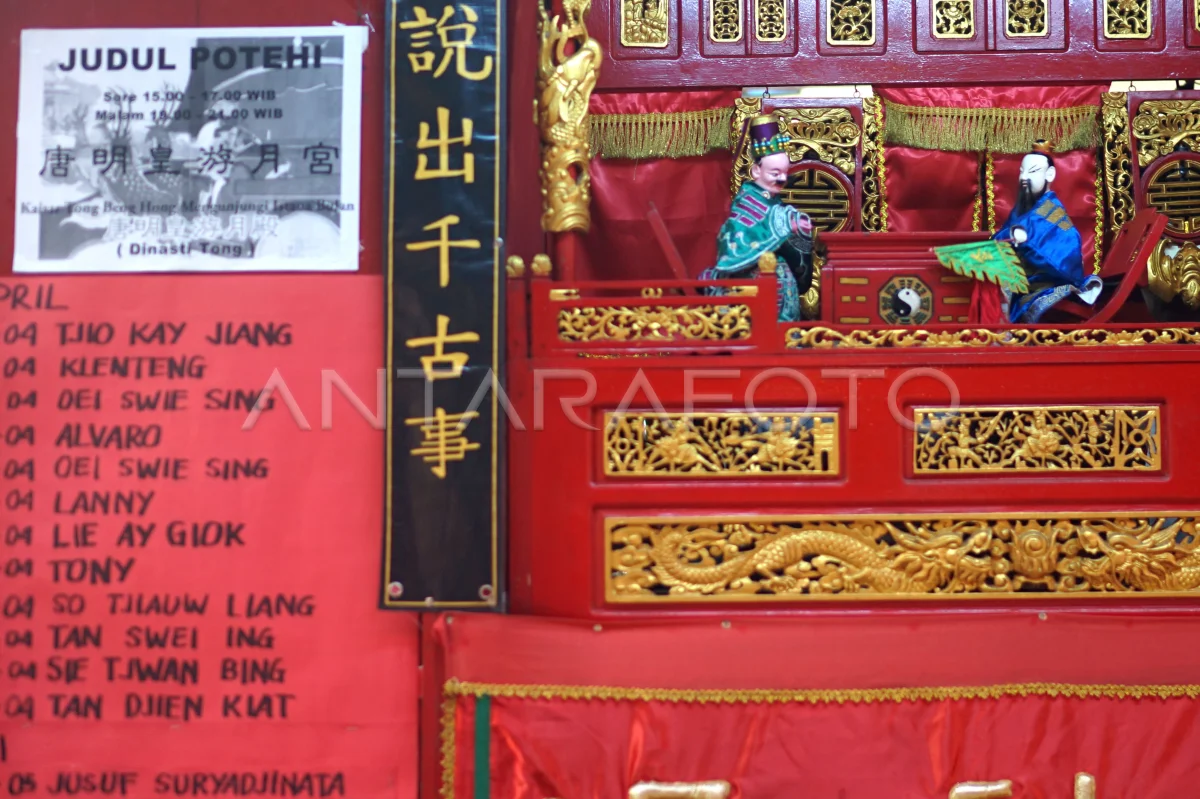 JUDUL POTEHI
Sore 15.00 - 17.00 WIB
Malam 19.00 - 21.00 WIB
唐明皇游月宮
Kaisar Tong Beng Hong Mengunjungi Istana Bulan
唐明皇游月殿
( Dinasti Tong )
說出千古事
PRIL
04 TJIO KAY JIANG
04 KLENTENG
04 OEI SWIE SING
04 ALVARO
04 OEI SWIE SING
04 LANNY
04 LIE AY GIOK
04 TONY
04 SO TJIAUW LIANG
04 TAN SWEI ING
04 SIE TJWAN BING
04 TAN DJIEN KIAT
05 JUSUF SURYADJINATA
ANTARAFOTO